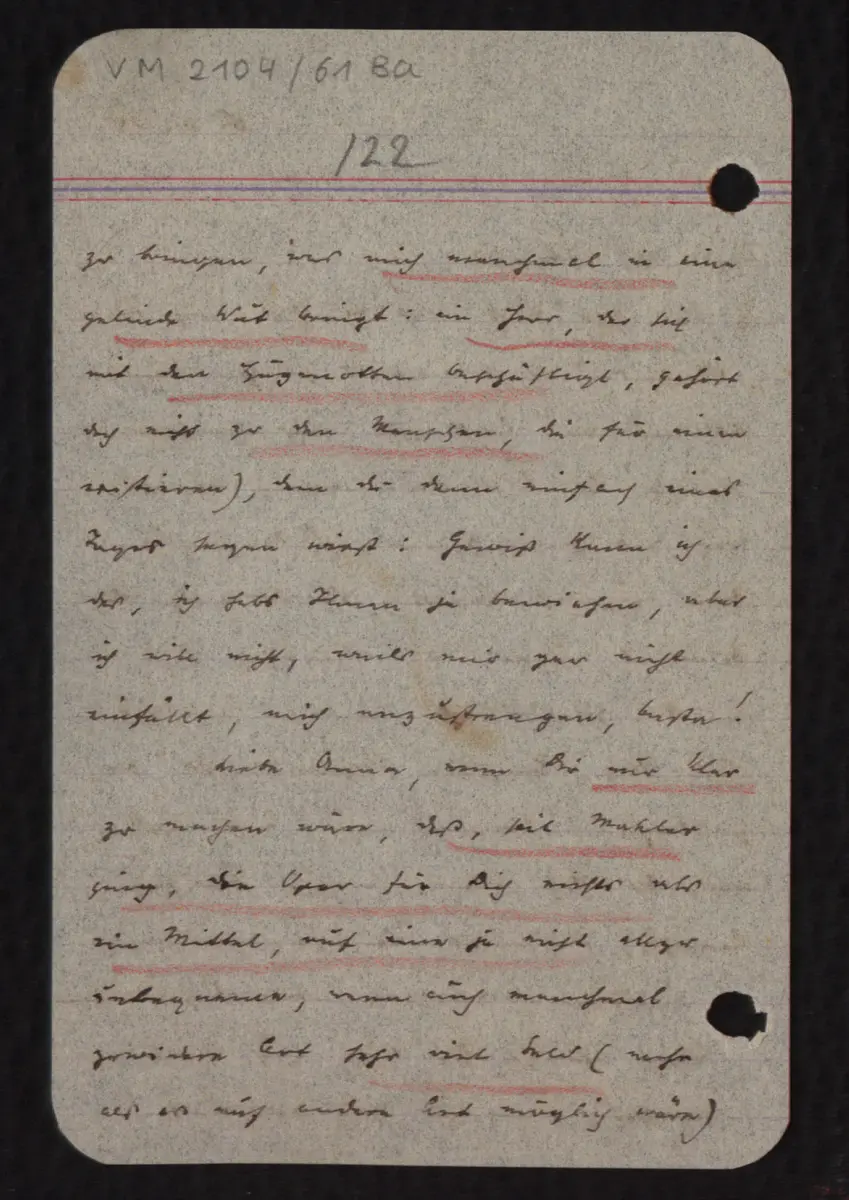 VM 2104/61 Ba
122
zu bringen, was mich manchmal in eine
gelinde Wut bringt: ein Herr, der sich
mit den Hugenotten beschäftigt, gehört
doch nicht zu den Menschen, die für einen
existieren), dem du dann einfach eines
Tages sagen wirst: Gewiß kann ich
das, ich habs Ihnen ja bewiesen, aber
ich will nicht, weils mir gar nicht
einfällt, mich anzustrengen, basta!
Liebe Anna, wenn Dir nur klar
zu machen wäre, daß, seit Mahler
ging, die Oper für Dich nichts als
ein Mittel, auf eine ja nicht allzu
unbequeme, wenn auch manchmal
zuwidere Art sehr viel Geld (mehr
als es auf andere Art möglich wäre)